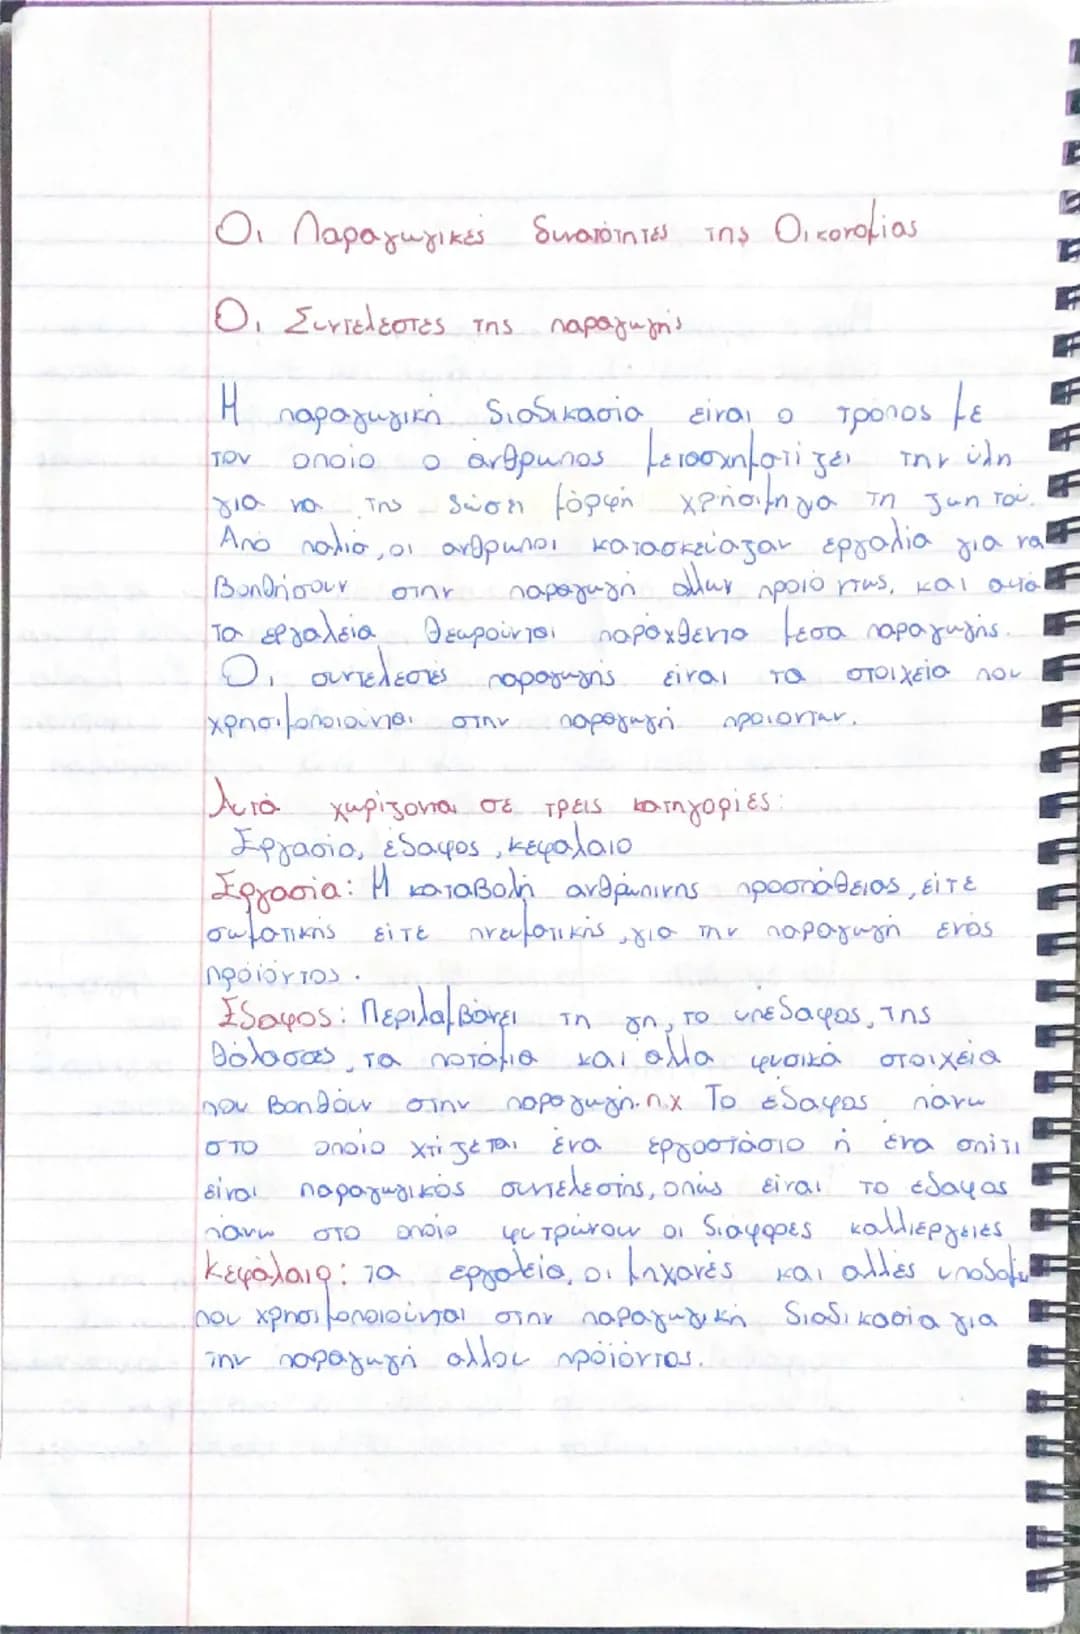 Οι Παραγωγικές δυνατότητες της Οικονομίας
Οι Συντελεστές της παραγωγής
Η παραγωγική διαδικασία είναι ο τρόπος με
τον οποίο ο άνθρωπος μετασχηματίζει την ύλη
για να της δώσει μορφή χρήσιμη για τη ζωή του.
Από παλιά, οι άνθρωποι κατασκεύαζαν εργαλία για να
βοηθήσουν στην παραγωγή άλλων προϊόντως, και αυτά
τα εργαλεία θεωρούνται παράχθεντα μέσα παραγωγής.
Οι συντελεστές παραγωγής είναι τα στοιχεία που
χρησιμοποιούνται στην παραγωγή προιόντων.
Αυτά χωρίζονται σε τρεις κατηγορίες:
Εργασία, έδαφος, κεφάλαιο
Εργασία: Η καταβολή ανθρώπινης προσπάθειας, είτε
σωματικής είτε πνευματικής, για την παραγωγή ενός
προϊόντος.
Έδαφος: Περιλαμβάνει τη γη, το υπέδαφος, της
θάλασσες, τα ποτάμια και άλλα φυσικά στοιχεία
που βοηθούν στην παραγωγή. π.χ Το έδαφος πάνω
στο οποίο χτίζεται ένα εργοστάσιο ή ένα σπίτι
είναι παραγωγικός συντελεστής, όπως είναι το έδαφος
πάνω στο οποίο φυτρώνουν οι διάφορες καλλιέργειες
Κεφάλαιο: τα εργαλεία, οι μηχανές και άλλες υποδομέ
που χρησιμοποιούνται στην παραγωγική διαδικασία για
την παραγωγή άλλου προϊόντος.